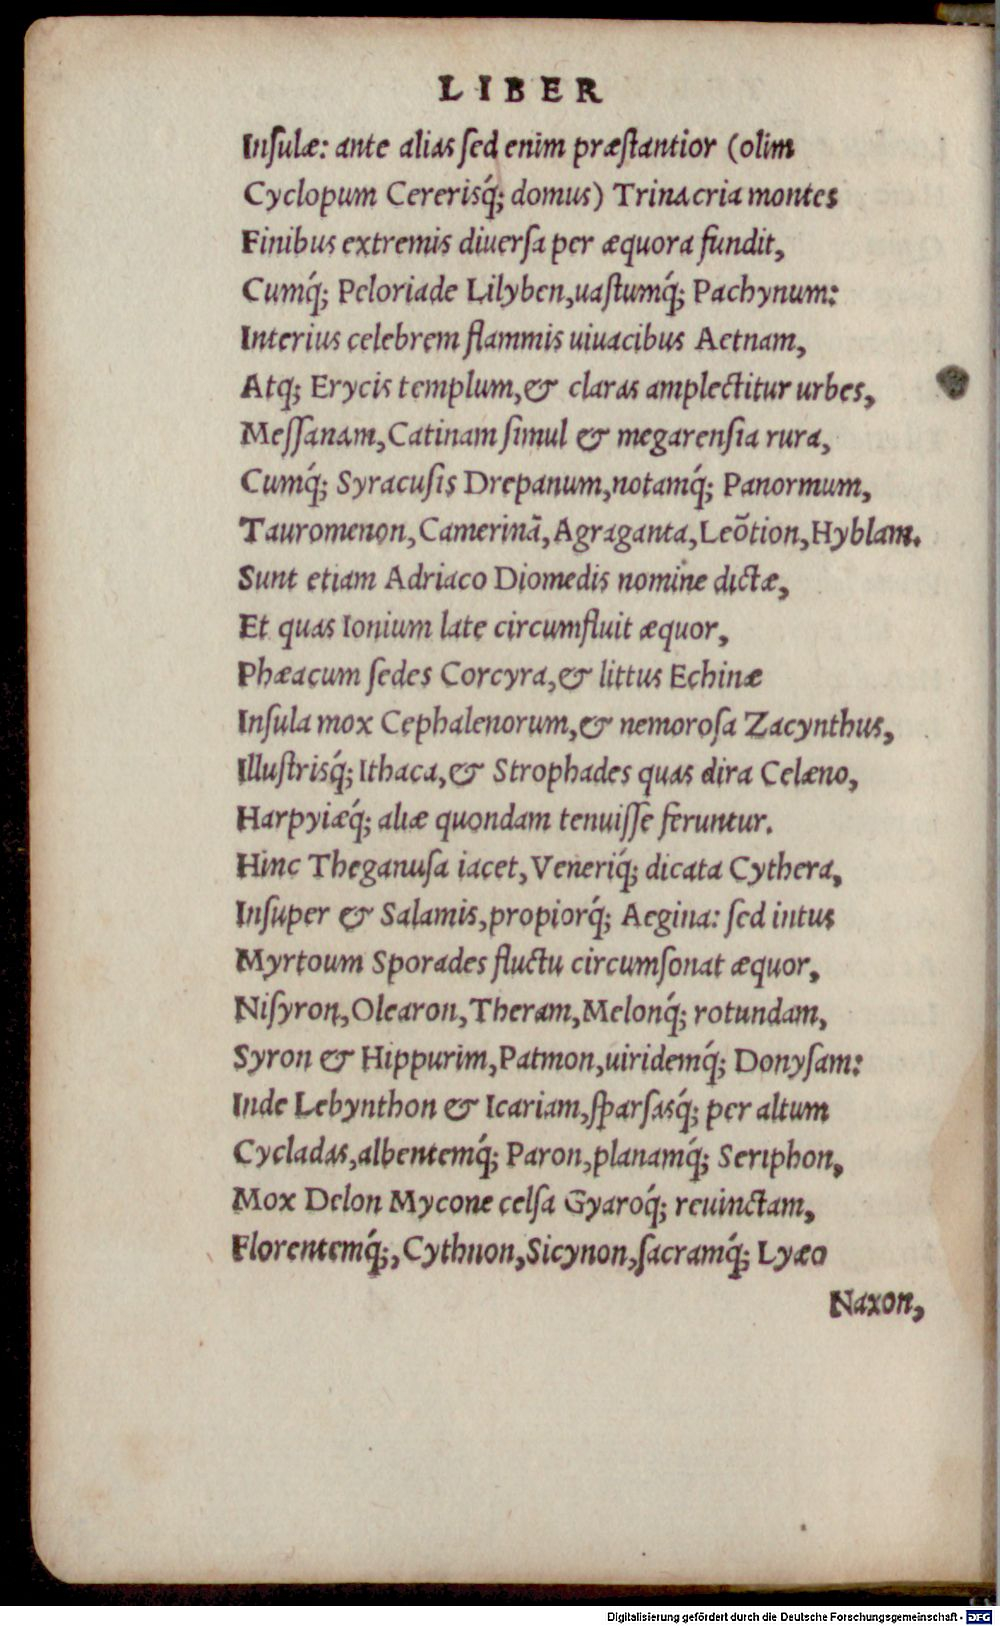 LIBER
Inſulæ: ante alias ſed enim præſtantior (olim
Cyclopum Cererisq́; domus) Trinacria montes
Finibus extremis diuerſa per æquora fundit,
Cumq́; Peloriade Lilyben,uaſtumq́; Pachynum:
Interius celebrem flammis uiuacibus Aetnam,
Atq; Erycis templum,& claras amplectitur urbes,
Meſſanam,Catinam ſimul & megarenſia rura,
Cumq́; Syracuſis Drepanum,notamq́; Panormum,
Tauromenon,Camerinã,Agraganta,Leõtion,Hyblam.
Sunt etiam Adriaco Diomedis nomine dictæ,
Et quas Ionium late circumfluit æquor,
Phæacum ſedes Corcyra,& littus Echinæ
Inſula mox Cephalenorum,& nemoroſa Zacynthus,
Illuſtrisq́; Ithaca,& Strophades quas dira Celæno,
Harpyiæq́; aliæ quondam tenuiſſe feruntur.
Hinc Theganuſa iacet,Veneriq́; dicata Cythera,
Inſuper & Salamis,propiorq́; Aegina: ſed intus
Myrtoum Sporades fluctu circumſonat æquor,
Niſyron,Olearon,Theram,Melonq́; rotundam,
Syron & Hippurim,Patmon,uiridemq́; Donyſam:
Inde Lebynthon & Icariam,ſparſasq́; per altum
Cycladas,albentemq́; Paron,planamq́; Seriphon,
Mox Delon Mycone celſa Gyaroq́; reuinctam,
Florentemq́;,Cythnon,Sicynon,ſacramq́; Lyæo
Naxon,
Digitalisierung gefördert durch die Deutsche Forschungsgemeinschaft - DFG